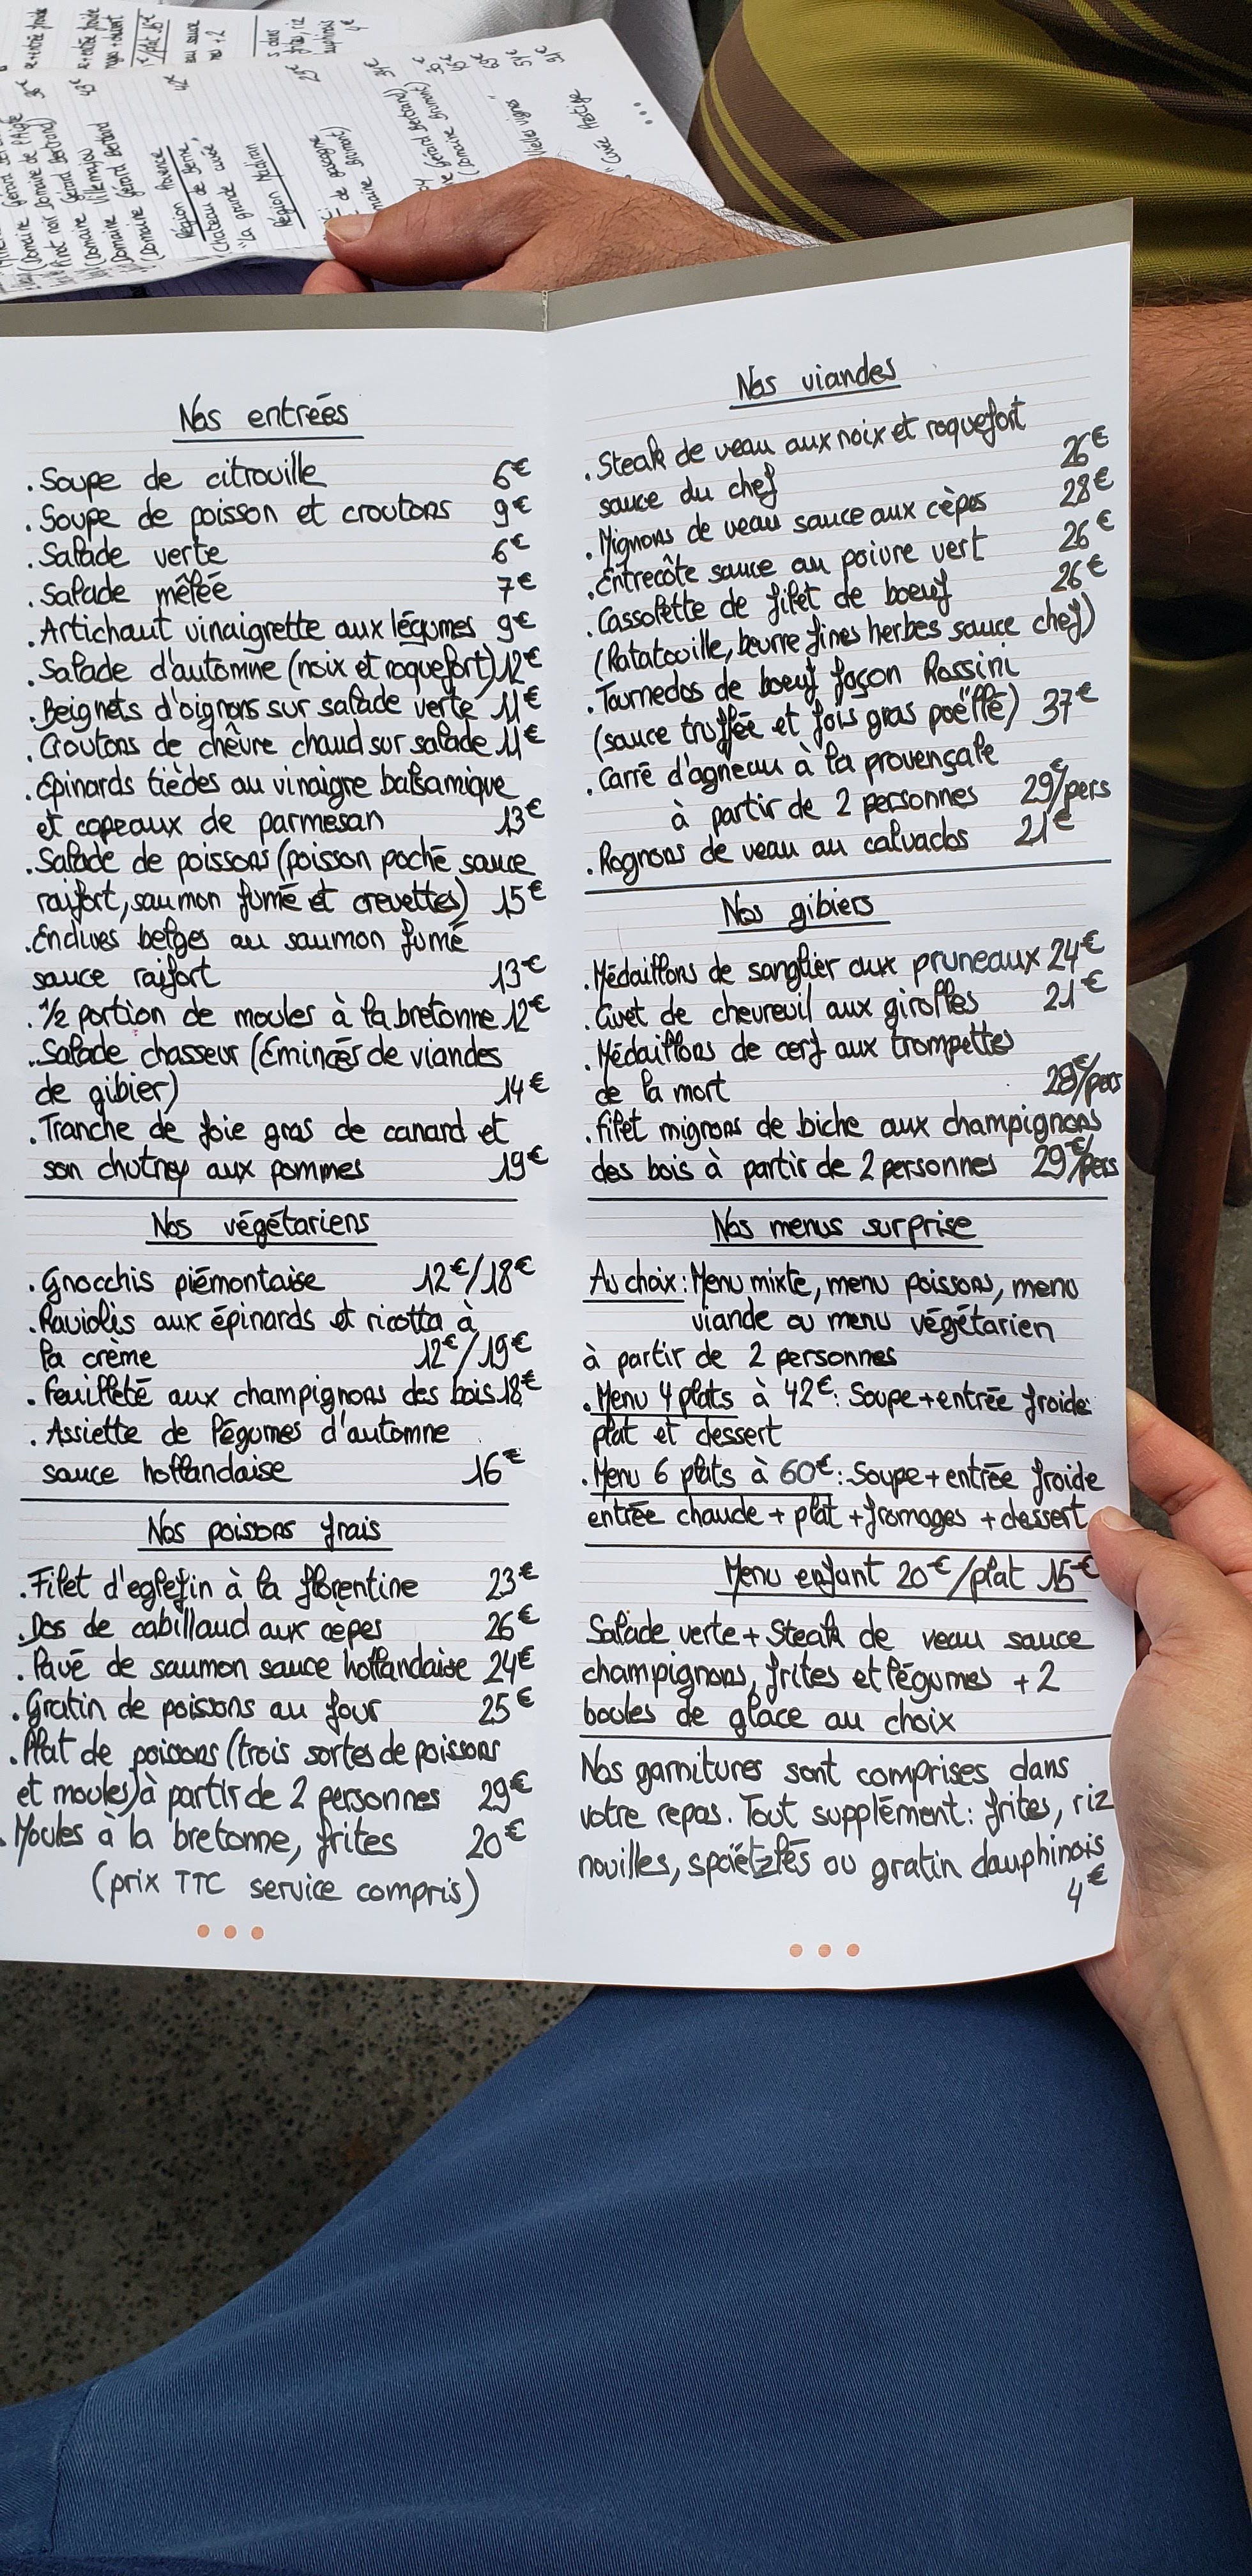 Nos entrées
.Soupe de citrouille 6€
.Soupe de poisson et croutons 9€
.Salade verte 6€
.Salade mêléé 7€
.Artichaut vinaigrette aux légumes 9€
.Salade d'automne (noix et roquefort) 12€
.Beignets d'oignons sur salade verte 11€
.Croutons de chêvre chaud sur salade 11€
.Epinards tièdes au vinaigre balsamique
et copeaux de parmesan 13€
.Salade de poissons (poisson poché sauce
raifort, saumon fumé et crevettes) 15€
.Endives belges au saumon fumé
sauce raifort 13€
.1/2 portion de moules à la bretonne 12€
.Salade chasseur (Émincés de viandes
de gibier) 14€
.Tranche de foie gras de canard et
son chutney aux pommes 19€
Nos végétariens
.Gnocchis piémontaise 12€/18€
.Raviolis aux épinards et ricotta à
la crème 12€/19€
.Feuilleté aux champignons des bois 18€
.Assiette de légumes d'automne
sauce hollandaise 16€
Nos poissons frais
.Filet d'eglefin à la florentine 23€
.Dos de cabillaud aux cèpes 26€
.Pavé de saumon sauce hollandaise 24€
.Gratin de poissons au four 25€
.Plat de poissons (trois sortes de poissons
et moules) à partir de 2 personnes 29€
.Moules à la bretonne, frites 20€
(prix TTC service compris)
Nos viandes
.Steak de veau aux noix et roquefort
sauce du chef 26€
.Mignons de veau sauce aux cèpes 28€
.Entrecôte sauce au poivre vert 26€
.Cassolette de filet de boeuf 26€
(Ratatouille, beurre fines herbes sauce chef)
.Tournedos de boeuf façon Rossini
(sauce truffée et fois gras poëllé) 37€
.Carré d'agneau à la provençale
à partir de 2 personnes 29€/pers
.Rognons de veau au calvados 21€
Nos gibiers
.Médaillons de sanglier aux pruneaux 24€
.Civet de chevreuil aux girolles 21€
.Médaillons de cerf aux trompettes
de la mort 28€/pers
.Filet mignons de biche aux champignons
des bois à partir de 2 personnes 29€/pers
Nos menus surprise
Au choix : Menu mixte, menu poissons, menu
viande ou menu végétarien
à partir de 2 personnes
.Menu 4 plats à 42€ : Soupe + entrée froide
plat et dessert
.Menu 6 plats à 60€ : Soupe + entrée froide
entrée chaude + plat + fromages + dessert
Menu enfant 20€/plat 15€
Salade verte + Steak de veau sauce
champignons, frites et légumes + 2
boules de glace au choix
Nos garnitures sont comprises dans
votre repas. Tout supplément : frites, riz
nouilles, spaëtzlés ou gratin dauphinois
4€
(Domaine de l'Aigle
Pinot noir Domaine Gérard Bertrand) 36€
Domaine Villemajou
(Domaine Gérard Bertrand 43€
Région Provence
Château de Berne,
"La grande cuvée 42€
Région Madiran
de gascogne 29€